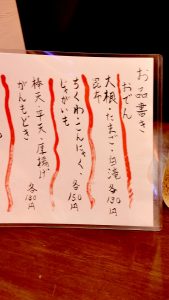 お品書き
おでん
大根・たまご・白滝 各130円
昆布
ちくわ・こんにゃく、各150円
じゃがいも
棒天・平天・厚揚げ 各180円
がんもどき